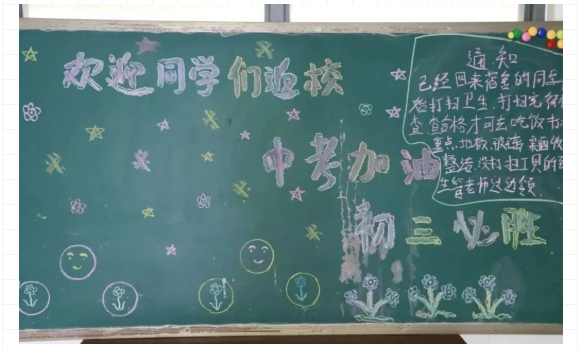 欢迎同学们返校
中考加油
初三必胜
通知
已经回来宿舍的同学
打扫卫生,打扫完
查,查合格才可去吃饭
重点:地板、
整洁,没打扫工具的
生管老师这边领